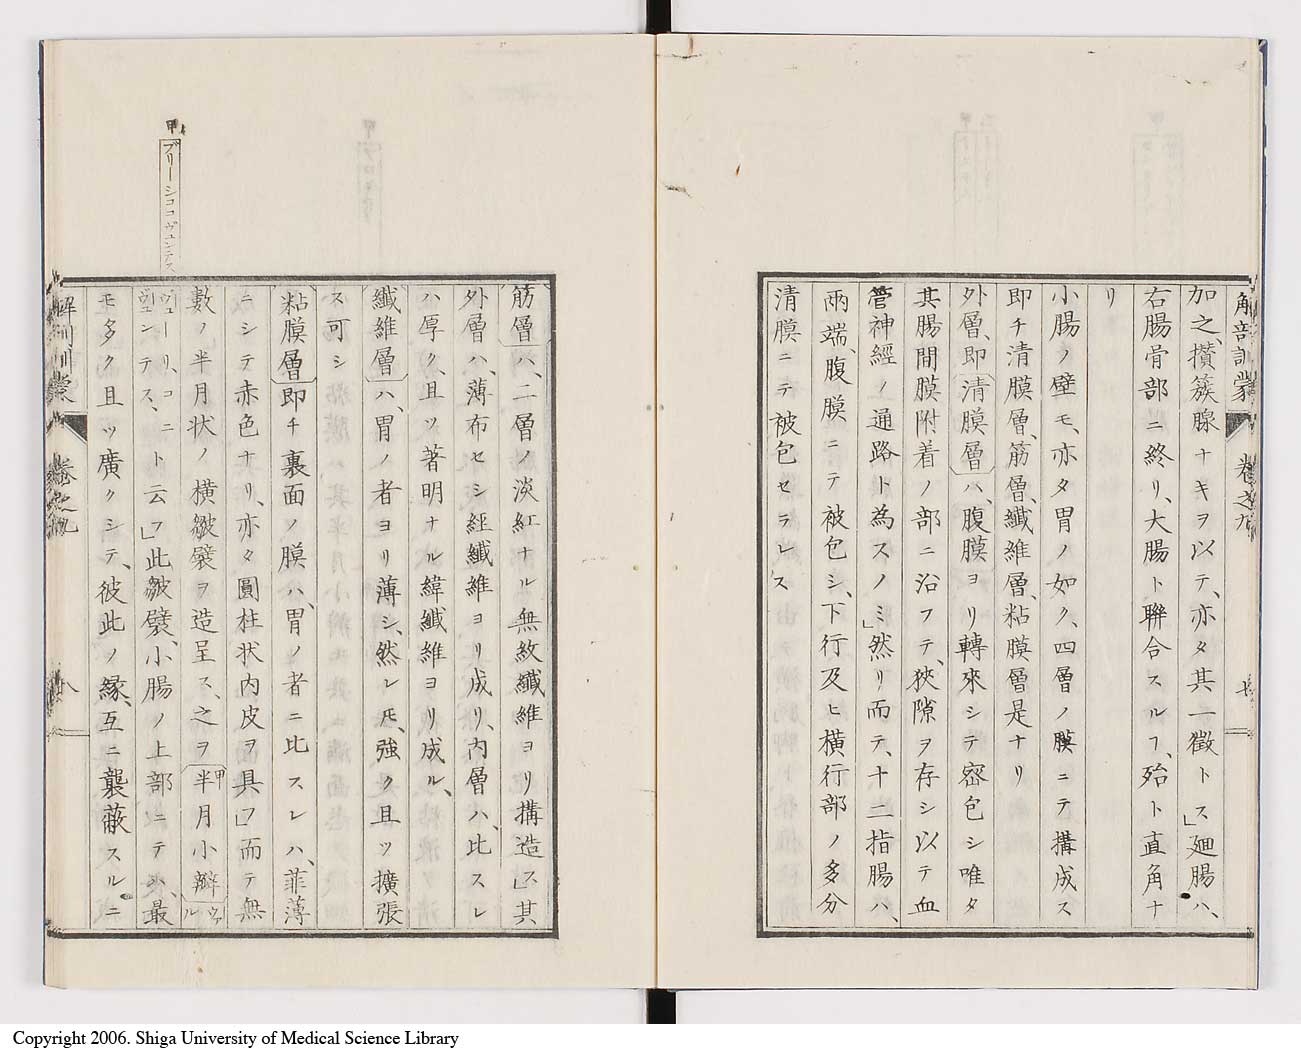 解剖訓蒙 卷之九 七
加之、攅簇腺ナキヲ以テ、亦タ其一徴トス」廻腸ハ、
右腸骨部ニ終リ、大腸ト聯合スルヿ、殆ト直角ナ
リ
小腸ノ壁モ、亦タ胃ノ如ク、四層ノ膜ニテ構成ス
即チ清膜層、筋層、纎維層、粘膜層是ナリ
外層、即清膜層ハ、腹膜ヨリ轉來シテ密包シ唯タ
其腸間膜附着ノ部ニ沿フテ、狹隙ヲ存シ以テ血
管神經ノ通路ト為スノミ」然リ而テ、十二指腸ハ、
兩端、腹膜ニテ被包シ、下行及ヒ横行部ノ多分
清膜ニテ被包セラレス
筋層ハ、二層ノ淡紅ナル無紋纎維ヨリ構造ス」其
外層ハ、薄布セシ経纎維ヨリ成リ、内層ハ、比スレ
ハ厚ク、且ツ著明ナル緯纎維ヨリ成ル、
纎維層ハ、胃ノ者ヨリ薄シ、然レ𪜈、強ク且ツ擴張
ス可シ
粘膜層即チ裏面ノ膜ハ、胃ノ者ニ比スレハ、菲薄
ニシテ赤色ナリ、亦タ圓柱状内皮ヲ具フ」而テ無
數ノ半月状ノ横皺襞ヲ造呈ス、之ヲ甲半月小瓣ヴァル
ヴューリ、コニヴェンテス、ト云フ」此皺襞、小腸ノ上部ニテハ、最
モ多ク且ツ廣クシテ、彼此ノ縁、互ニ襲蔽スルニ
甲
プリーシココヴェンテス
解剖訓蒙 卷之九 八
Copyright 2006. Shiga University of Medical Science Library